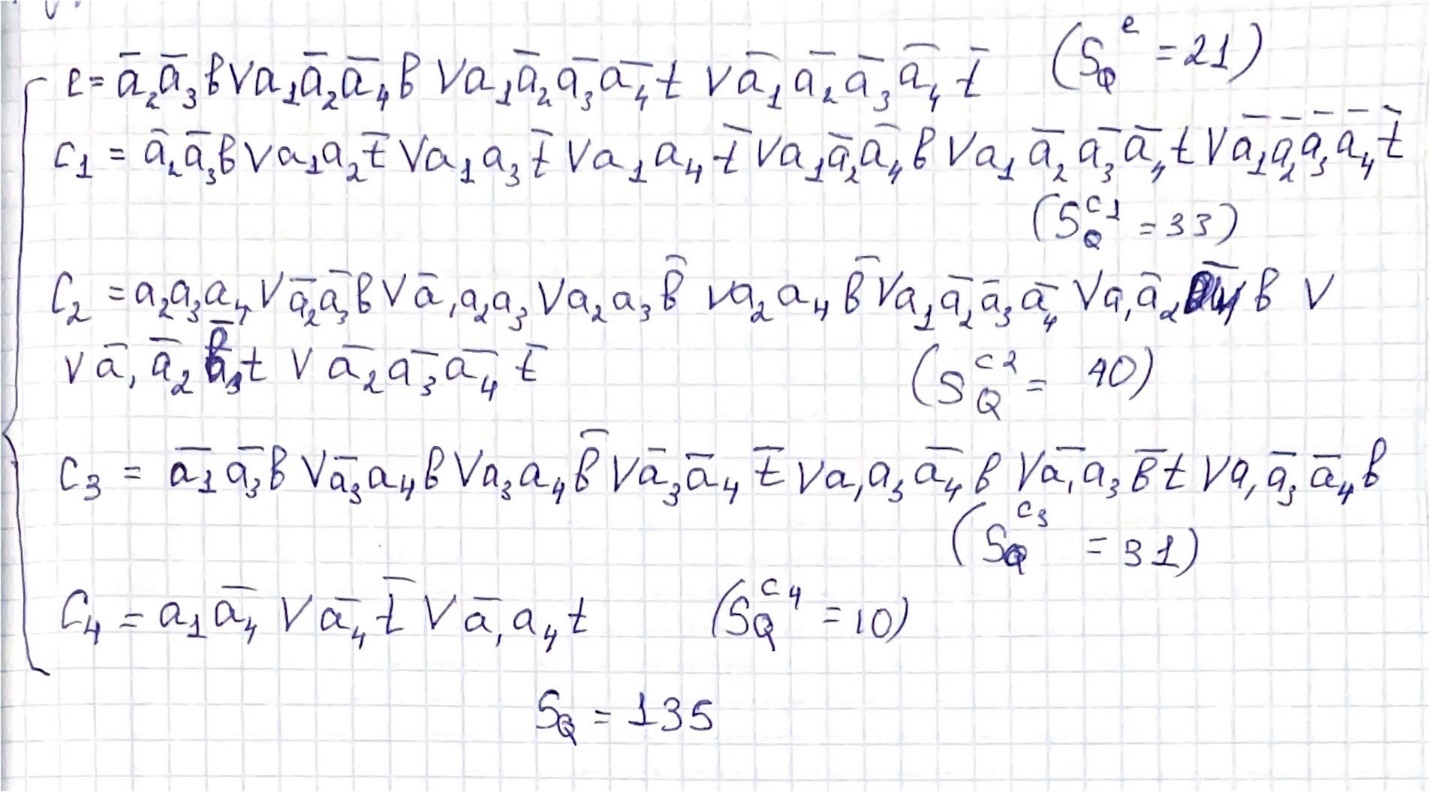 e = a̅₂a̅₃в ∨ a₁a̅₂a̅₄в ∨ a₁a̅₂a̅₃a̅₄t ∨ a̅₁a̅₂a̅₃a̅₄t̅ (S_Q^e = 21)
c₁ = a̅₂a̅₃в ∨ a₁a₂t̅ ∨ a₁a₃t̅ ∨ a₁a₄t̅ ∨ a₁a̅₂a̅₄в ∨ a₁a̅₂a̅₃a̅₄t ∨ a̅₁a̅₂a̅₃a̅₄t̅
(S_Q^c1 = 33)
C₂ = a₂a₃a₄ ∨ a̅₂a̅₃в ∨ a̅₁a₂a₃ ∨ a₂a₃в̅ ∨ a₂a₄в̅ ∨ a₁a̅₂a̅₃a̅₄ ∨ a₁a̅₂a̅₄в ∨
∨ a̅₁a̅₂в̅t ∨ a̅₂a̅₃a̅₄t̅ (S_Q^c2 = 40)
C₃ = a̅₁a̅₃в ∨ a̅₃a₄в ∨ a₃a₄в̅ ∨ a̅₃a̅₄t̅ ∨ a₁a₃a̅₄в ∨ a̅₁a₃в̅t ∨ a₁a̅₃a̅₄в
(S_Q^c3 = 31)
C₄ = a₁a̅₄ ∨ a̅₄t̅ ∨ a̅₁a₄t (S_Q^c4 = 10)
S_Q = 135